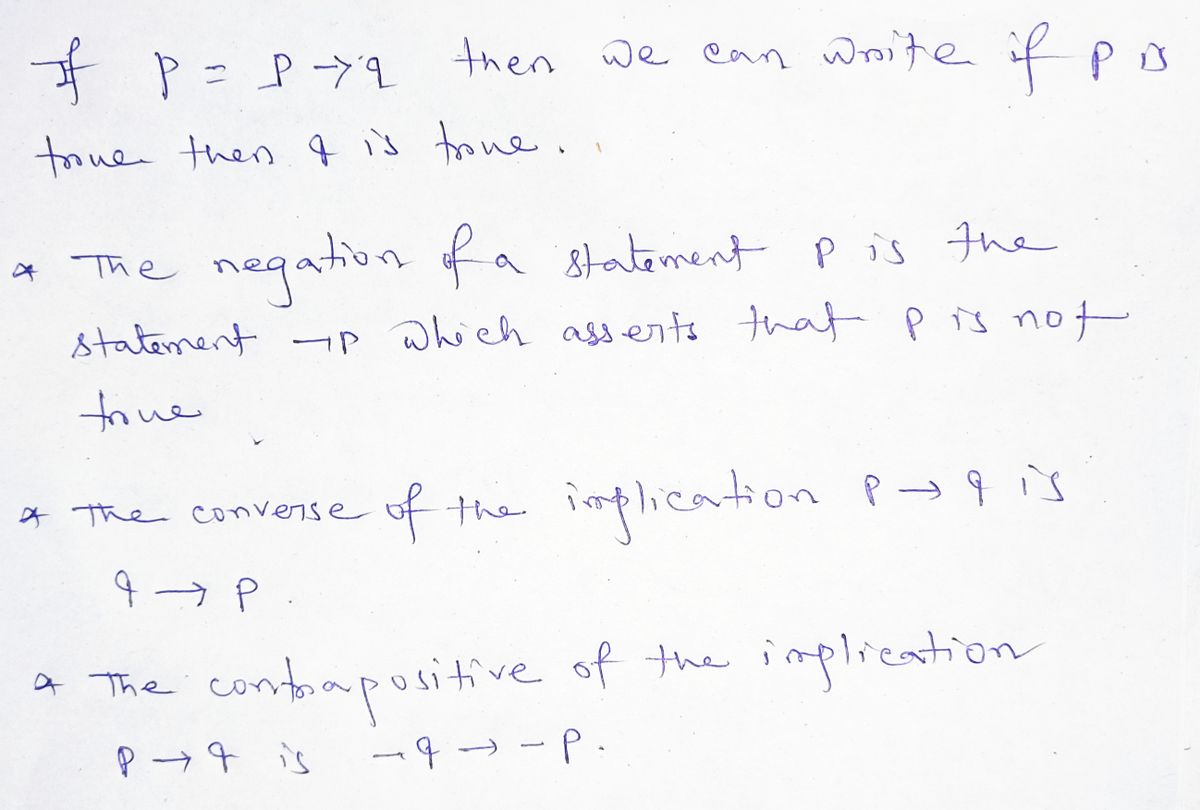 If p = p → q then we can write if p is
true then q is true.
* The negation of a statement p is the
statement ¬p which asserts that p is not
true
* The converse of the implication p → q is
q → p.
* The contrapositive of the implication
p → q is ¬q → -p.